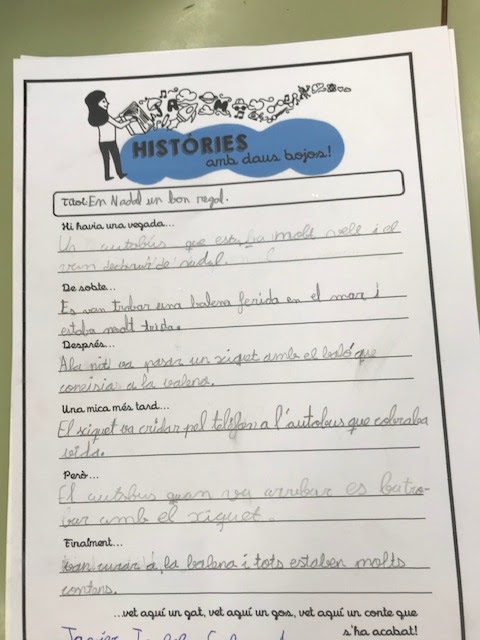 HISTÒRIES
amb daus bojos!
Títol: En Nadal un bon regal.
Hi havia una vegada...
Un autobús que estaba molt vell i el
van decorar de nadal.
De sobte...
Es van trobar una balena ferida en el mar i
estaba molt trista.
Després...
A la nit va pasar un xiquet amb el baló que
coneixia a la balena.
Una mica més tard...
El xiquet va cridar pel telèfon a l'autobus que cobraba
vida.
Però...
El autobus quan va arribar es
amb el xiquet.
Finalment...
van curar a la balena i tots estaben molts
contens.
...vet aquí un gat, vet aquí un gos, vet aquí un conte que
s'ha acabat!
Javier